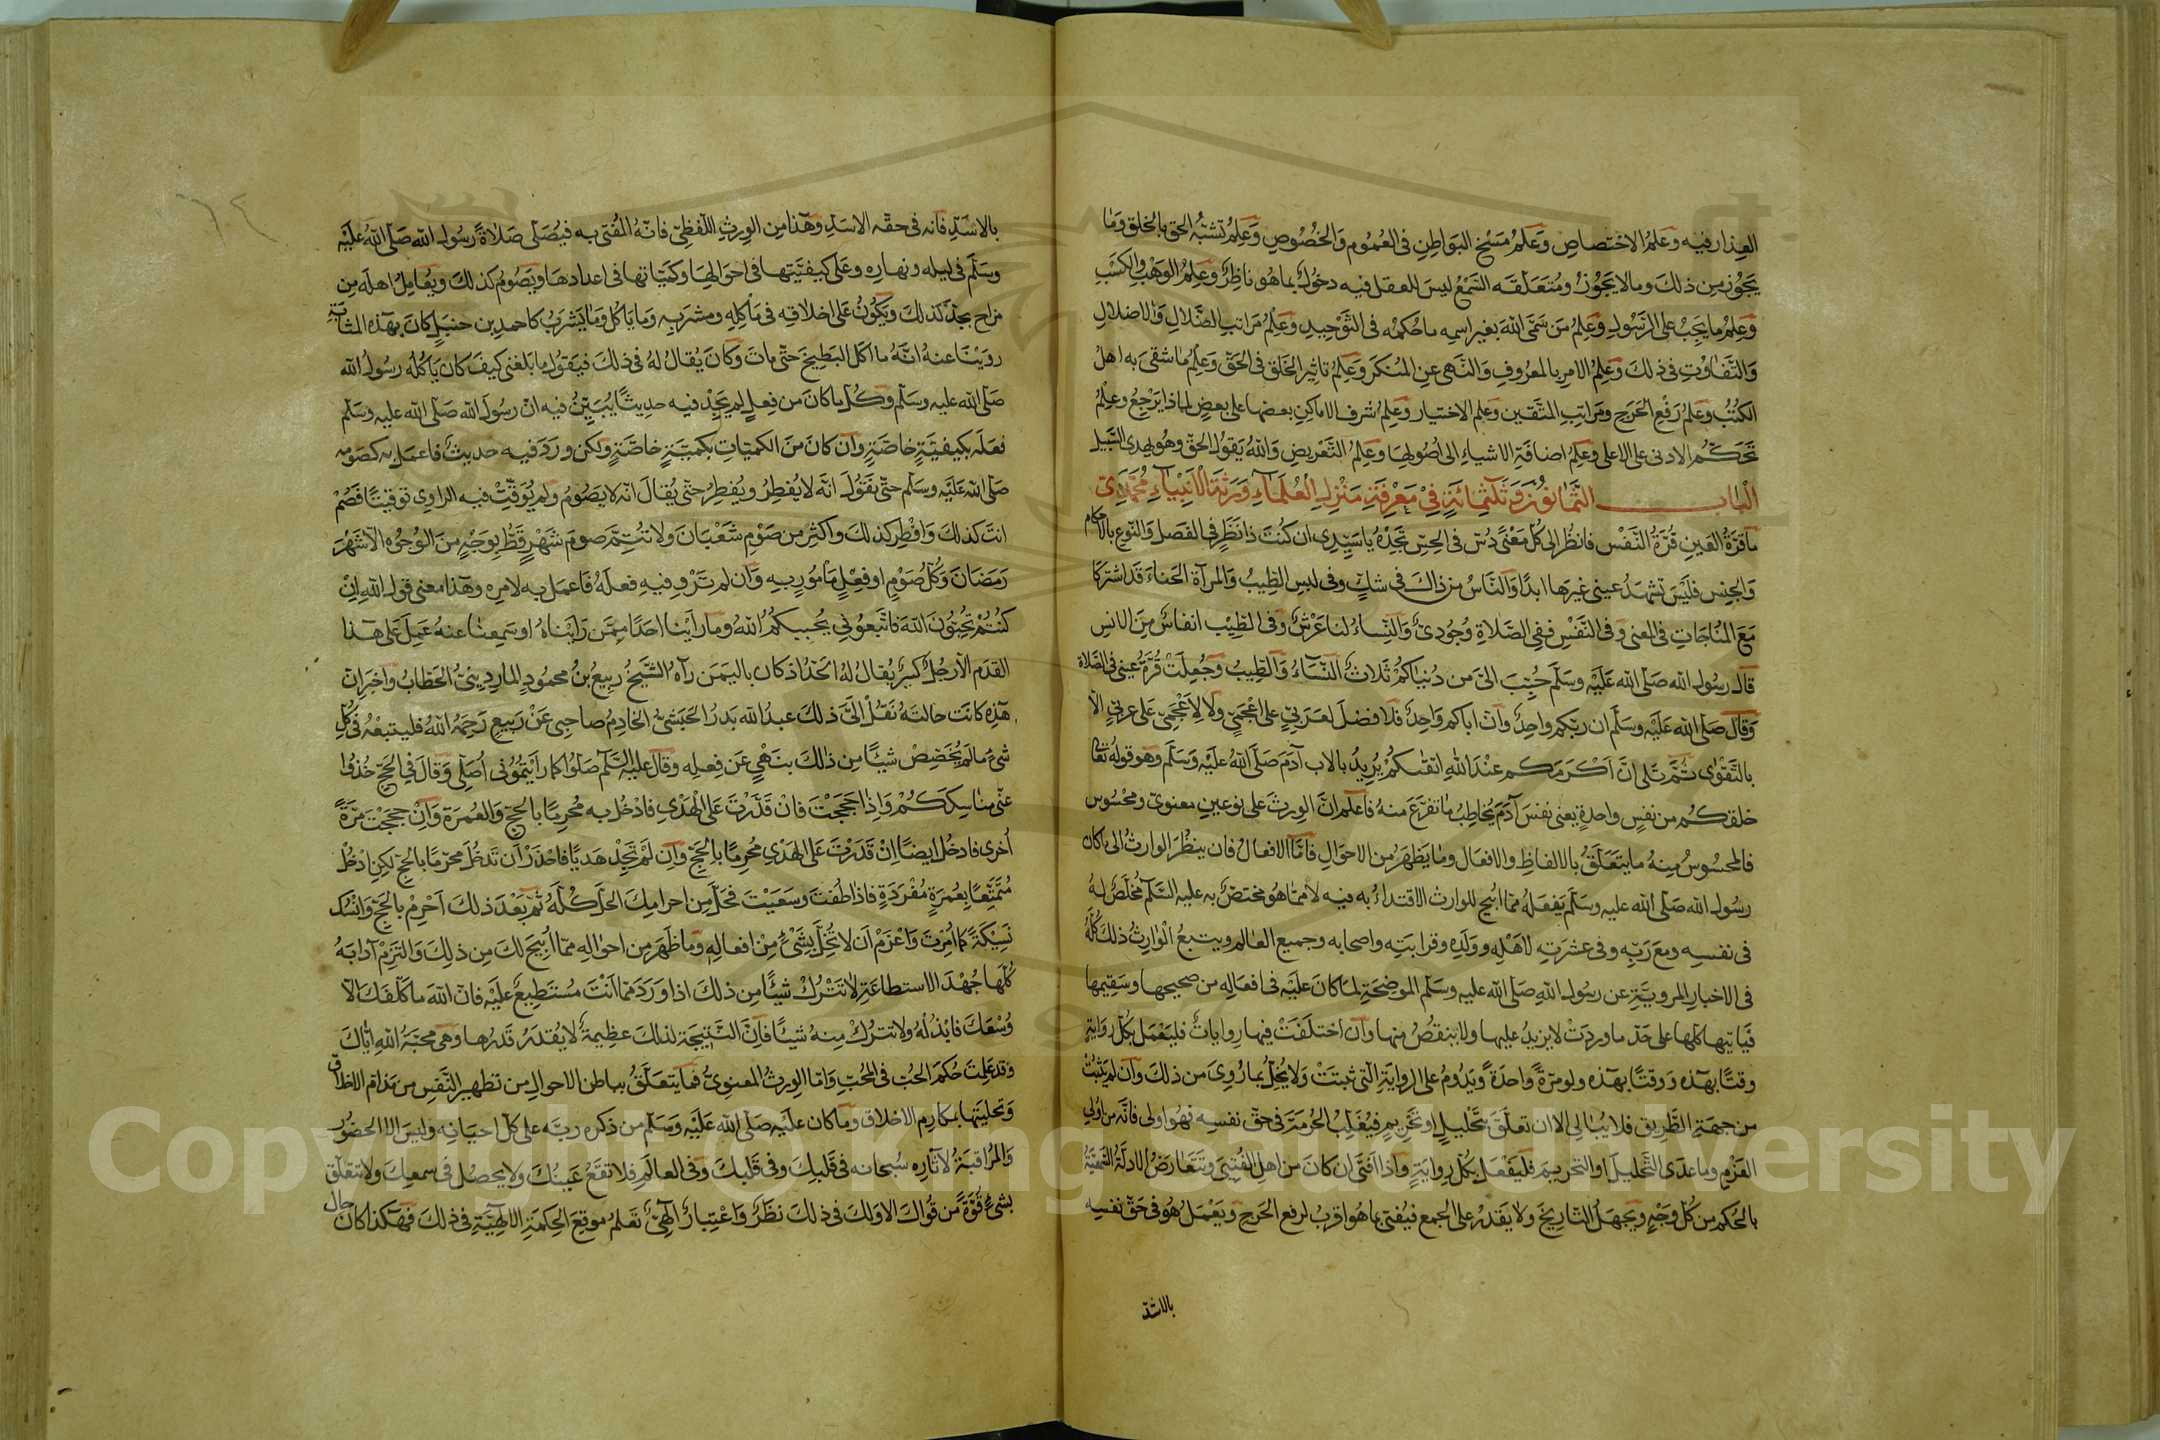 العذار فيه وعلم الاختصاص وعلم مسخ البواطن في العموم والخصوص وعلم تشبه الحق بالخلق وما
يجوز من ذلك وما لا يجوز ومتعلقه السمع ليس للعقل فيه دخول بما هو ناظر وعلم الوهب والكسب
وعلم ما يجب على الرسول وعلم من سمى الله بغير اسمه ما حكمه في التوحيد وعلم مراتب الضلال والاضلال
والتفاوت في ذلك وعلم الامر بالمعروف والنهي عن المنكر وعلم تاثير الخلق في الحق وعلم ما شقى به اهل
الكتب وعلم رفع الحرج ومراتب المتقين وعلم الاختيار وعلم شرف الاماكن بعضها على بعض لماذا يرجع وعلم
تحكم الادنى على الاعلى وعلم اضافة الاشياء الى اصولها وعلم التعريض والله يقول الحق وهو يهدي السبيل
الباب الثمانون وثلثمائة في معرفة منزل العلماء ورثة الانبياء محمدي
ما قرة العين قرة النفس فانظر الى كل معنى دس في الحس تجده يا سيدي ان كنت ذا نظر في الفصل والنوع بالاحكام
والجنس فليس تشهد عيني غيرها ابدا والناس من ذاك في شك وفي لبس الطيب والمرأة الحسناء قد اشتركا
مع المناجات في المعنى وفي النفس ففي الصلاة وجودي والنساء لنا عرش وفي الطيب انفاس من الانس
قال رسول الله صلى الله عليه وسلم حبب الي من دنياكم ثلاث النساء والطيب وجعلت قرة عيني في الصلاة
وقال صلى الله عليه وسلم ان ربكم واحد وان اباكم واحد فلا فضل لعربي على اعجمي ولا لاعجمي على عربي الا
بالتقوى ثم تلى ان اكرمكم عند الله اتقيكم يريد بالاب آدم صلى الله عليه وسلم وهو قوله تعالى
خلقكم من نفس واحدة يعنى نفس آدم يخاطب ما تفرع منه فاعلم ان الورث على نوعين معنوي ومحسوس
فالمحسوس منه ما يتعلق بالالفاظ والافعال وما يظهر من الاحوال فاما الافعال فان ينظر الوارث الى ما كان
رسول الله صلى الله عليه وسلم يفعله مما ابيح للوارث الاقتداء به فيه لا مما هو مختص به عليه السلم مخلص له
في نفسه ومع ربه وفي عشرته لاهله وولده وقرابته واصحابه وجميع العالم ويتبع الوارث ذلك كله
في الاخبار المروية عن رسول الله صلى الله عليه وسلم الموضحة لما كان عليه في افعاله من صحيحها وسقيمها
فياتيها كلها على حد ما وردت لا يزيد عليها ولا ينقص منها وان اختلفت فيها روايات فليعمل بكل رواية
وقتا بهذه ووقتا بهذه ولو مرة واحدة ويدوم على الرواية التي ثبتت ولا يخل بما روي من ذلك وان لم يثبت
من جهة الطريق فلا يبالي الا ان تعلق بتحليل او تحريم فيغلب الحرمة في حق نفسه فهو اولى فانه من اولي
العزم وما عدى التحليل او التحريم فليفعل بكل رواية واذا افتى ان كان من اهل الفتيى وتتعارض الادلة السمعية
بالحكم من كل وجه ويجهل التاريخ ولا يقدر على الجمع فيفتي بما هو اقرب لرفع الحرج ويعمل هو في حق نفسه
بالاشد
بالاشد فانه في حقه الاسد وهذا من الورث اللفظي فانه المفتى به فيصلى صلاة رسول الله صلى الله عليه
وسلم في ليله ونهاره وعلى كيفيتها في احوالها وكمياتها في اعدادها ويصوم كذلك ويعامل اهله من
مزاح بجد كذلك ويكون على اخلاقه في ماكله ومشربه وما ياكل وما يشرب كاحمد بن حنبل كان بهذه المثابة
روينا عنه انه ما اكل البطيخ حتى مات وكان يقال له في ذلك فيقول ما بلغني كيف كان ياكله رسول الله
صلى الله عليه وسلم وكل ما كان من فعل لم يجد فيه حديثا يبين فيه ان رسول الله صلى الله عليه وسلم
فعله بكيفية خاصة وان كان من الكميات بكمية خاصة ولكن ورد فيه حديث فاعمل به كصومه
صلى الله عليه وسلم حتى نقول انه لا يفطر ويفطر حتى يقال انه لا يصوم ولم يوقت فيه الراوي توقيتا فصم
انت كذلك وافطر كذلك واكثر من صوم شعبان ولا تتم صوم شهر قط بوجه من الوجوه الا شهر
رمضان وكل صوم او فعل مامور به وان لم ترو فيه فعله فاعمل به لامره وهذا معنى قول الله ان
كنتم تحبون الله فاتبعوني يحببكم الله وما راينا احدا ممن رايناه او سمعنا عنه عمل على هذا
القدم الا رجل كبير يقال له اتخذ اذ كان باليمن رآه الشيخ ربيع بن محمود المارديني الحطاب واخبر ان
هذه كانت حالته نقل الي ذلك عبد الله بدر الحبشي الخادم صاحبي عن ربيع رحمه الله فليتبعه في كل
شيء ما لم يخصص شيئا من ذلك بنهي عن فعله وقال عليه السلم صلوا كما رايتموني اصلي وقال في الحج خذوا
عني مناسككم واذا حججت فان قدرت على الهدي فادخل به محرما بالحج والعمرة وان حججت مرة
اخرى فادخل ايضا ان قدرت على الهدي محرما بالحج وان لم تجد هديا فاحذر ان تدخل محرما بالحج لكن ادخل
متمتعا بعمرة مفردة فاذا طفت وسعيت فحل من احرامك الحل كله ثم بعد ذلك احرم بالحج وانسك
نسيكة كما امرت واعزم ان لا تخل بشيء من افعاله وما ظهر من احواله مما ابيح لك من ذلك والتزم آدابه
كلها جهد الاستطاعة لا تترك شيئا من ذلك اذا ورد مما انت مستطيع عليه فان الله ما كلفك الا
وسعك فابذله ولا تترك منه شيئا فان النتيجة لذلك عظيمة لا يقدر قدرها وهي محبة الله اياك
وقد علمت حكم الحب في المحب واما الورث المعنوي فما يتعلق بباطن الاحوال من تطهير النفس من مذام الاخلاق
وتحليتها بمكارم الاخلاق وما كان عليه صلى الله عليه وسلم من ذكره ربه على كل احيانه وليس الا الحضور
والمراقبة لآثاره سبحانه في قلبك وفي قلبك وفي العالم فلا تقع عينك ولا يحصل في سمعك ولا تتعلق
بشيء قوة من قواك الا ولك في ذلك نظر واعتبار الهي تعلم موقع الحكمة الالهية في ذلك فهكذا كان حال
Copyright © King Saud University